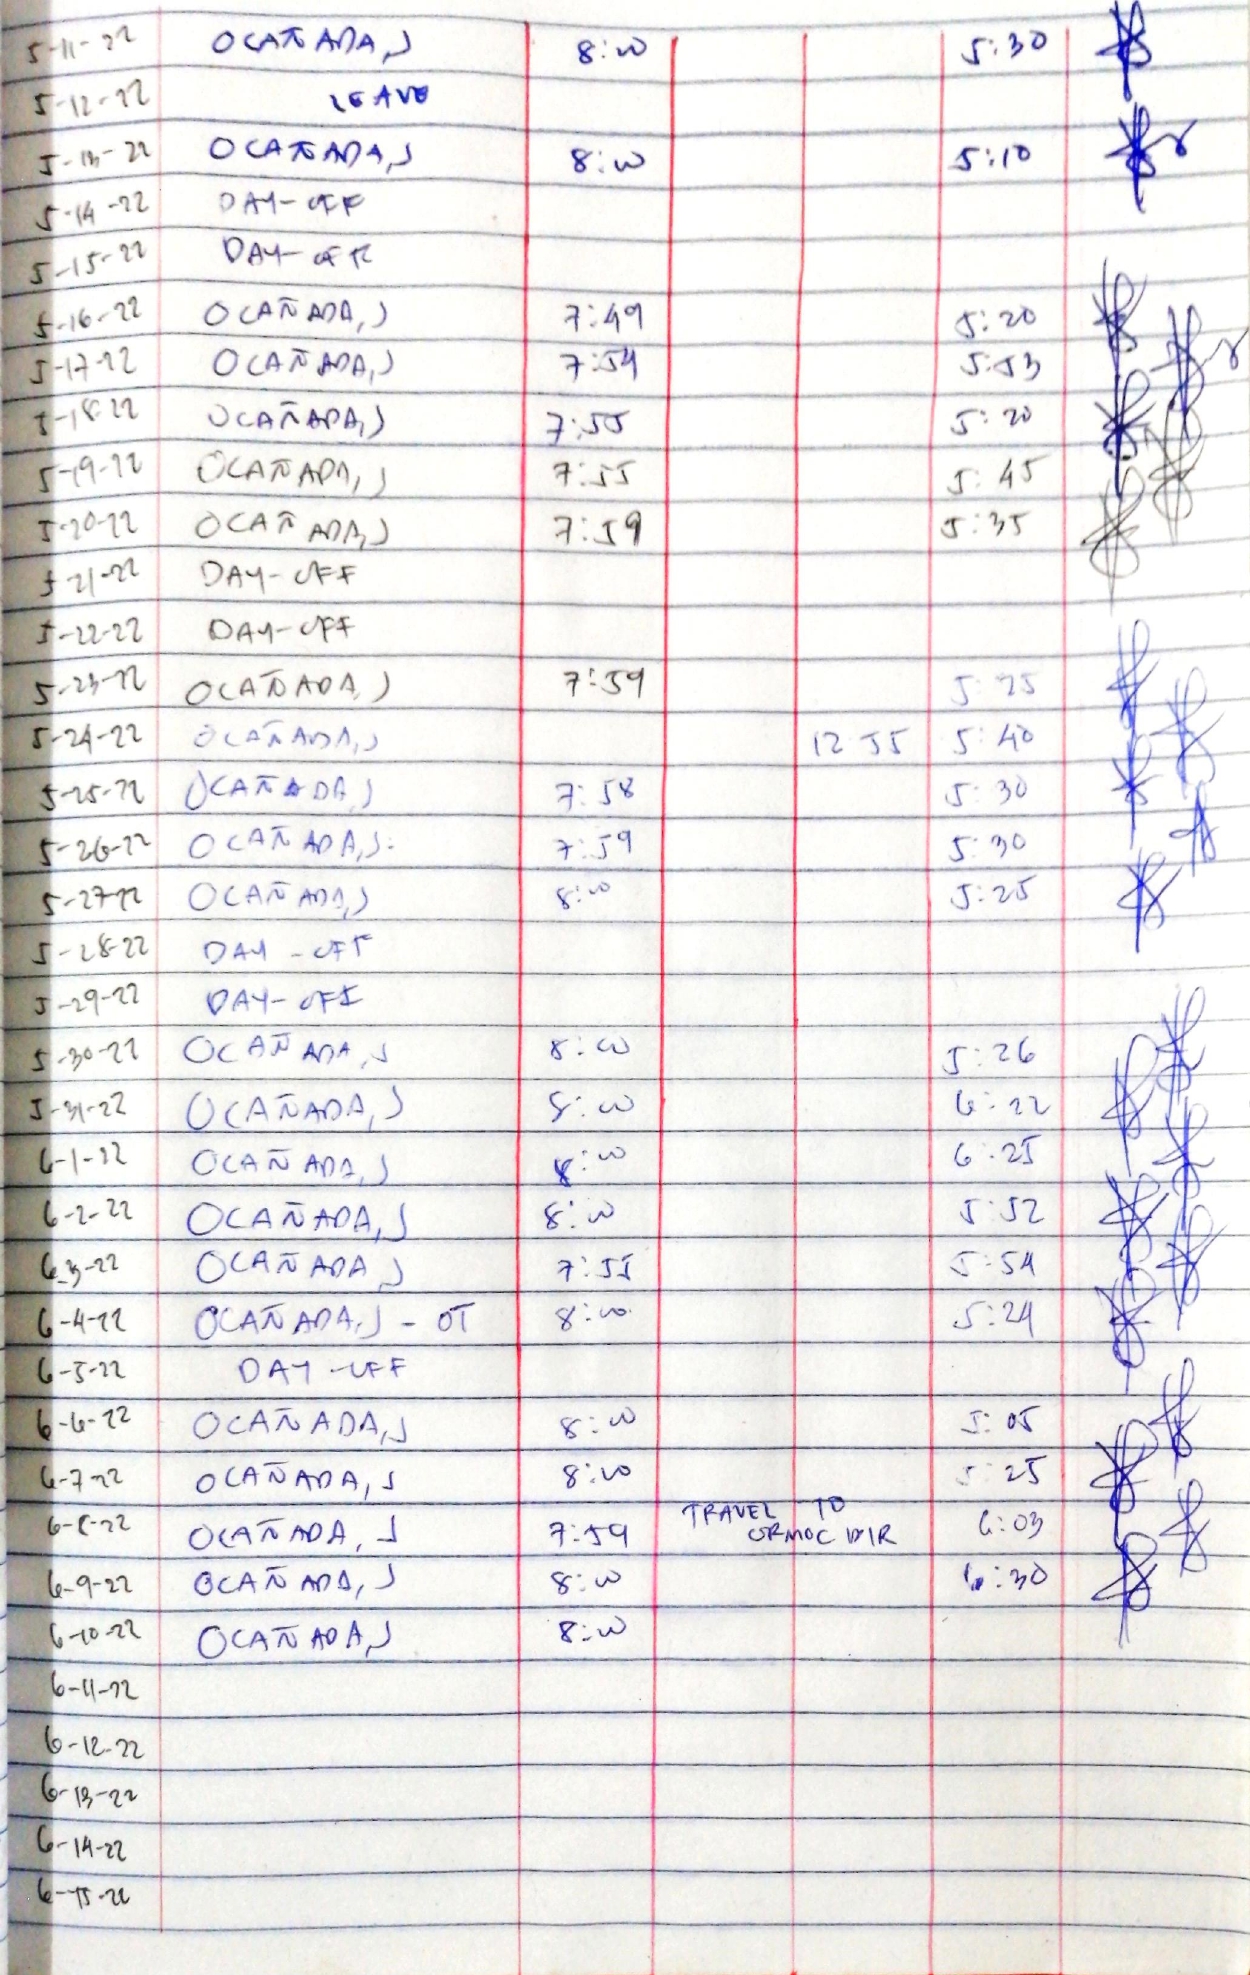 5-11-22 OCAÑADA, J 8:00 5:30
5-12-22 LEAVE
5-13-22 OCAÑADA, J 8:00 5:10
5-14-22 DAY-OFF
5-15-22 DAY-OFF
5-16-22 OCAÑADA, J 7:49 5:20
5-17-22 OCAÑADA, J 7:54 5:53
5-18-22 OCAÑADA, J 7:55 5:20
5-19-22 OCAÑADA, J 7:55 5:45
5-20-22 OCAÑADA, J 7:59 5:35
5-21-22 DAY-OFF
5-22-22 DAY-OFF
5-23-22 OCAÑADA, J 7:59 5:25
5-24-22 OCAÑADA, J 12:55 5:40
5-25-22 OCAÑADA, J 7:58 5:30
5-26-22 OCAÑADA, J. 7:59 5:30
5-27-22 OCAÑADA, J 8:00 5:25
5-28-22 DAY-OFF
5-29-22 DAY-OFF
5-30-22 OCAÑADA, J 8:00 5:26
5-31-22 OCAÑADA, J 8:00 6:22
6-1-22 OCAÑADA, J 8:00 6:25
6-2-22 OCAÑADA, J 8:00 5:52
6-3-22 OCAÑADA, J 7:55 5:54
6-4-22 OCAÑADA, J - OT 8:00 5:24
6-5-22 DAY-OFF
6-6-22 OCAÑADA, J 8:00 5:05
6-7-22 OCAÑADA, J 8:00 5:25
6-8-22 OCAÑADA, J 7:59 TRAVEL TO ORMOC 6:03
6-9-22 OCAÑADA, J 8:00 6:30
6-10-22 OCAÑADA, J 8:00
6-11-22
6-12-22
6-13-22
6-14-22
6-15-22